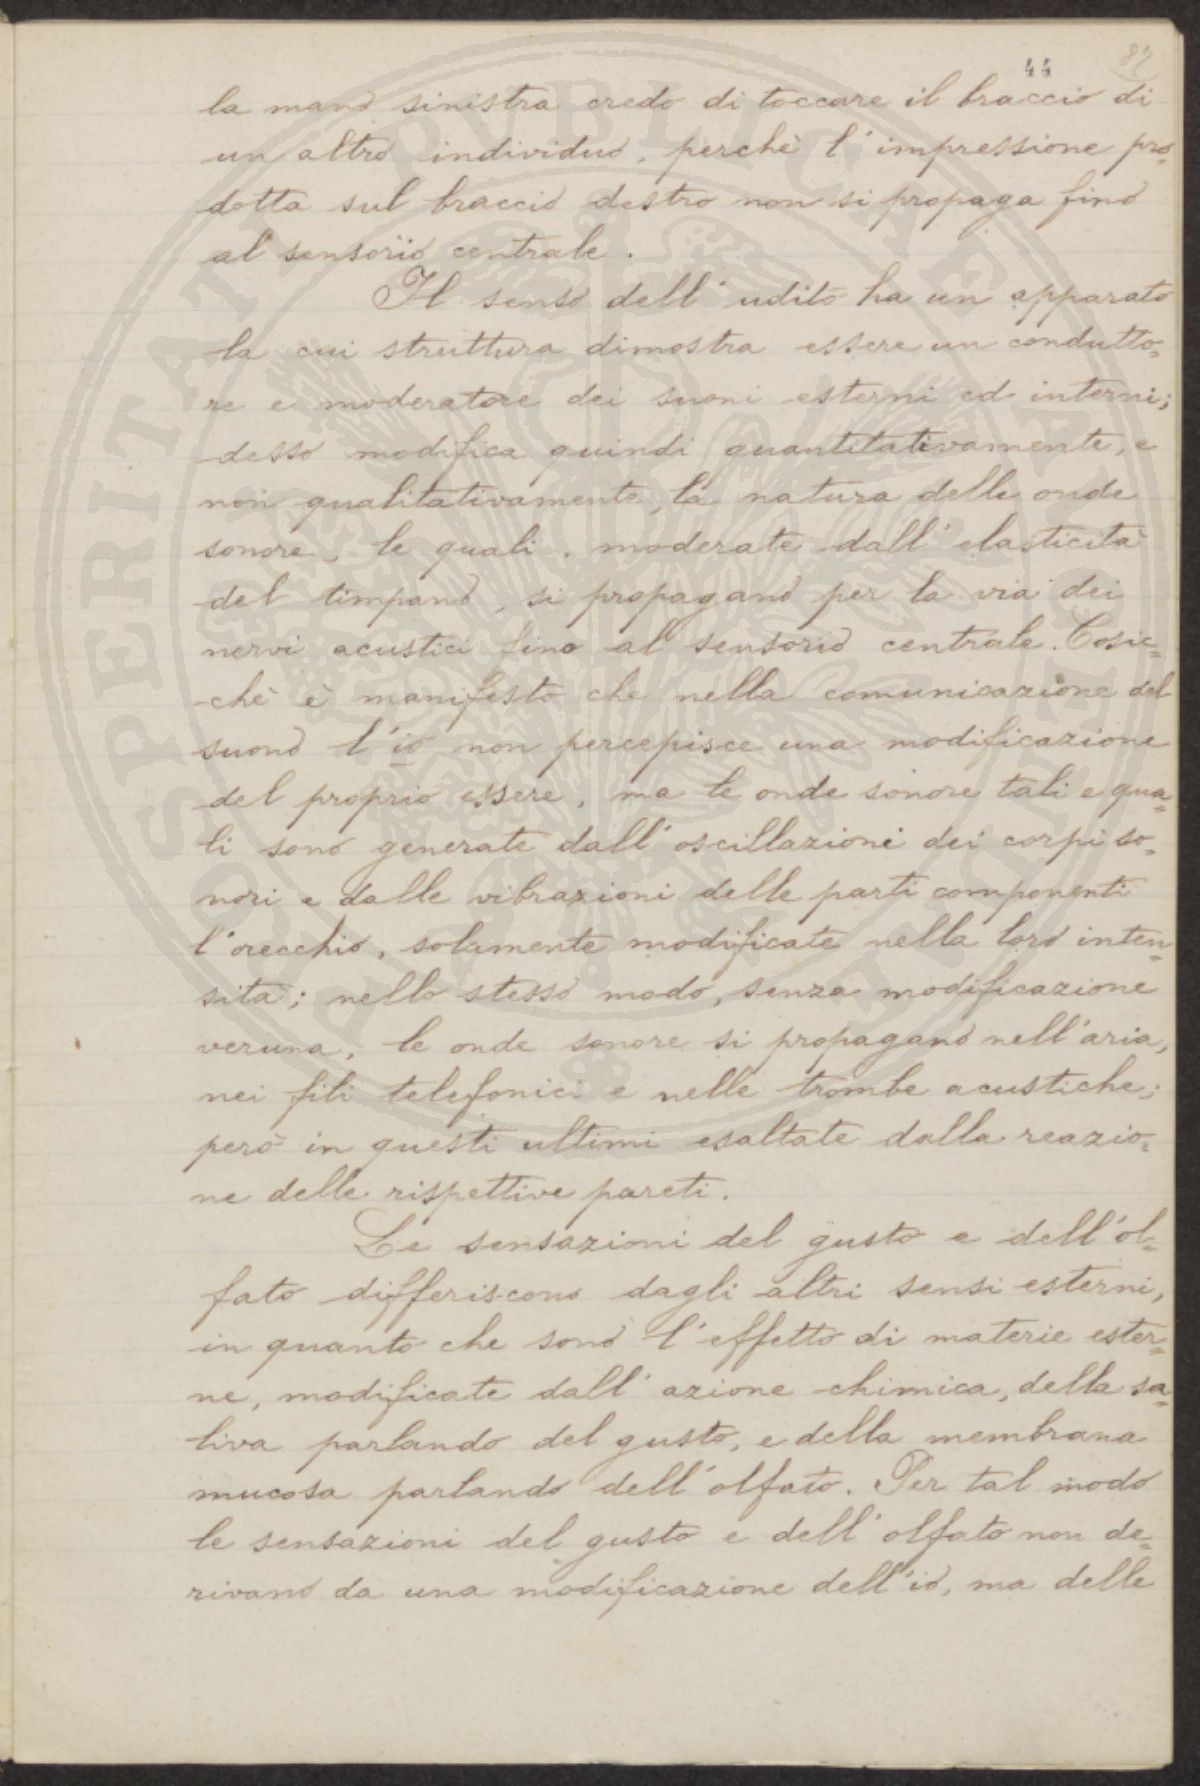 44 87
la mano sinistra credo di toccare il braccio di
un altro individuo, perchè l'impressione pro=
dotta sul braccio destro non si propaga fino
al sensorio centrale.
Il senso dell'udito ha un apparato
la cui struttura dimostra essere un condutto=
re e moderatore dei suoni esterni ed interni;
desso modifica quindi quantitativamente, e
non qualitativamente, la natura delle onde
sonore, le quali, moderate dall'elasticità
del timpano, si propagano per la via dei
nervi acustici fino al sensorio centrale. Cosic=
chè è manifesto che nella comunicazione del
suono l'io non percepisce una modificazione
del proprio essere, ma le onde sonore tali e qua=
li sono generate dall'oscillazioni dei corpi so=
nori e dalle vibrazioni delle parti componenti
l'orecchio, solamente modificate nella loro inten=
sità; nello stesso modo, senza modificazione
veruna, le onde sonore si propagano nell'aria,
nei fili telefonici e nelle trombe acustiche;
però in questi ultimi esaltate dalla reazio=
ne delle rispettive pareti.
Le sensazioni del gusto e dell'ol=
fato differiscono dagli altri sensi esterni,
in quanto che sono l'effetto di materie ester=
ne, modificate dall'azione chimica, della sa=
liva parlando del gusto, e della membrana
mucosa parlando dell'olfato. Per tal modo
le sensazioni del gusto e dell'olfato non de=
rivano da una modificazione dell'io, ma delle